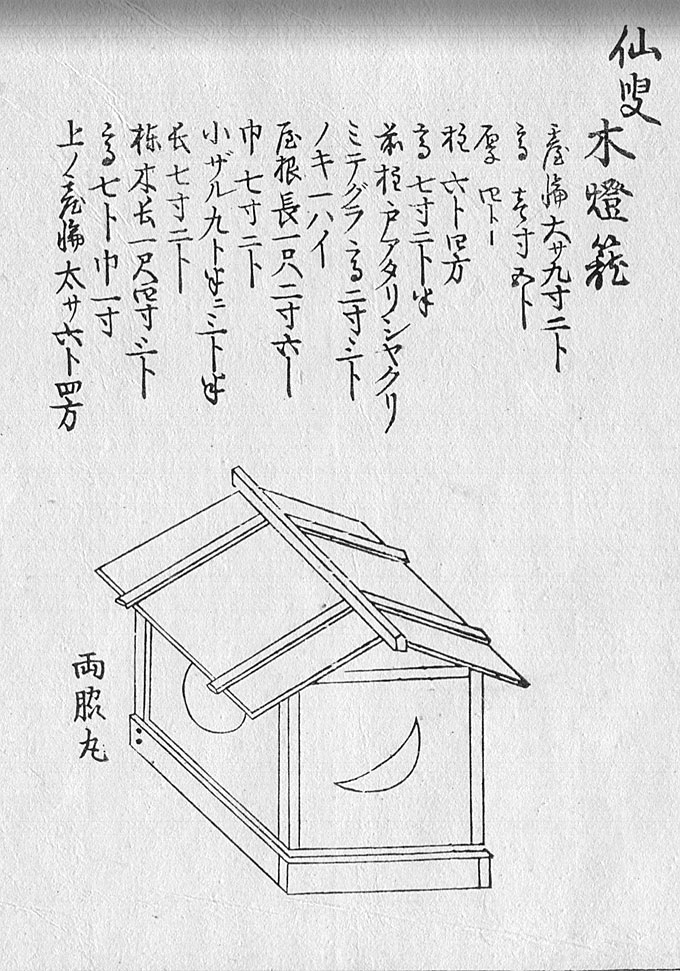 仙叟
木燈籠
臺輪大サ九寸二卜
高 壱寸五卜
厚 四卜
柱 六卜四方
高 七寸二卜半
前柱戸アタリシヤクリ
ミテグラ高二寸三卜
ノキ一ハイ
屋根長一尺二寸六卜
巾七寸二卜
小ザル九卜半ニ三卜半
長七寸二卜
棟木長一尺四寸三卜
高七卜巾一寸
上ノ臺輪太サ六卜四方
両脇丸